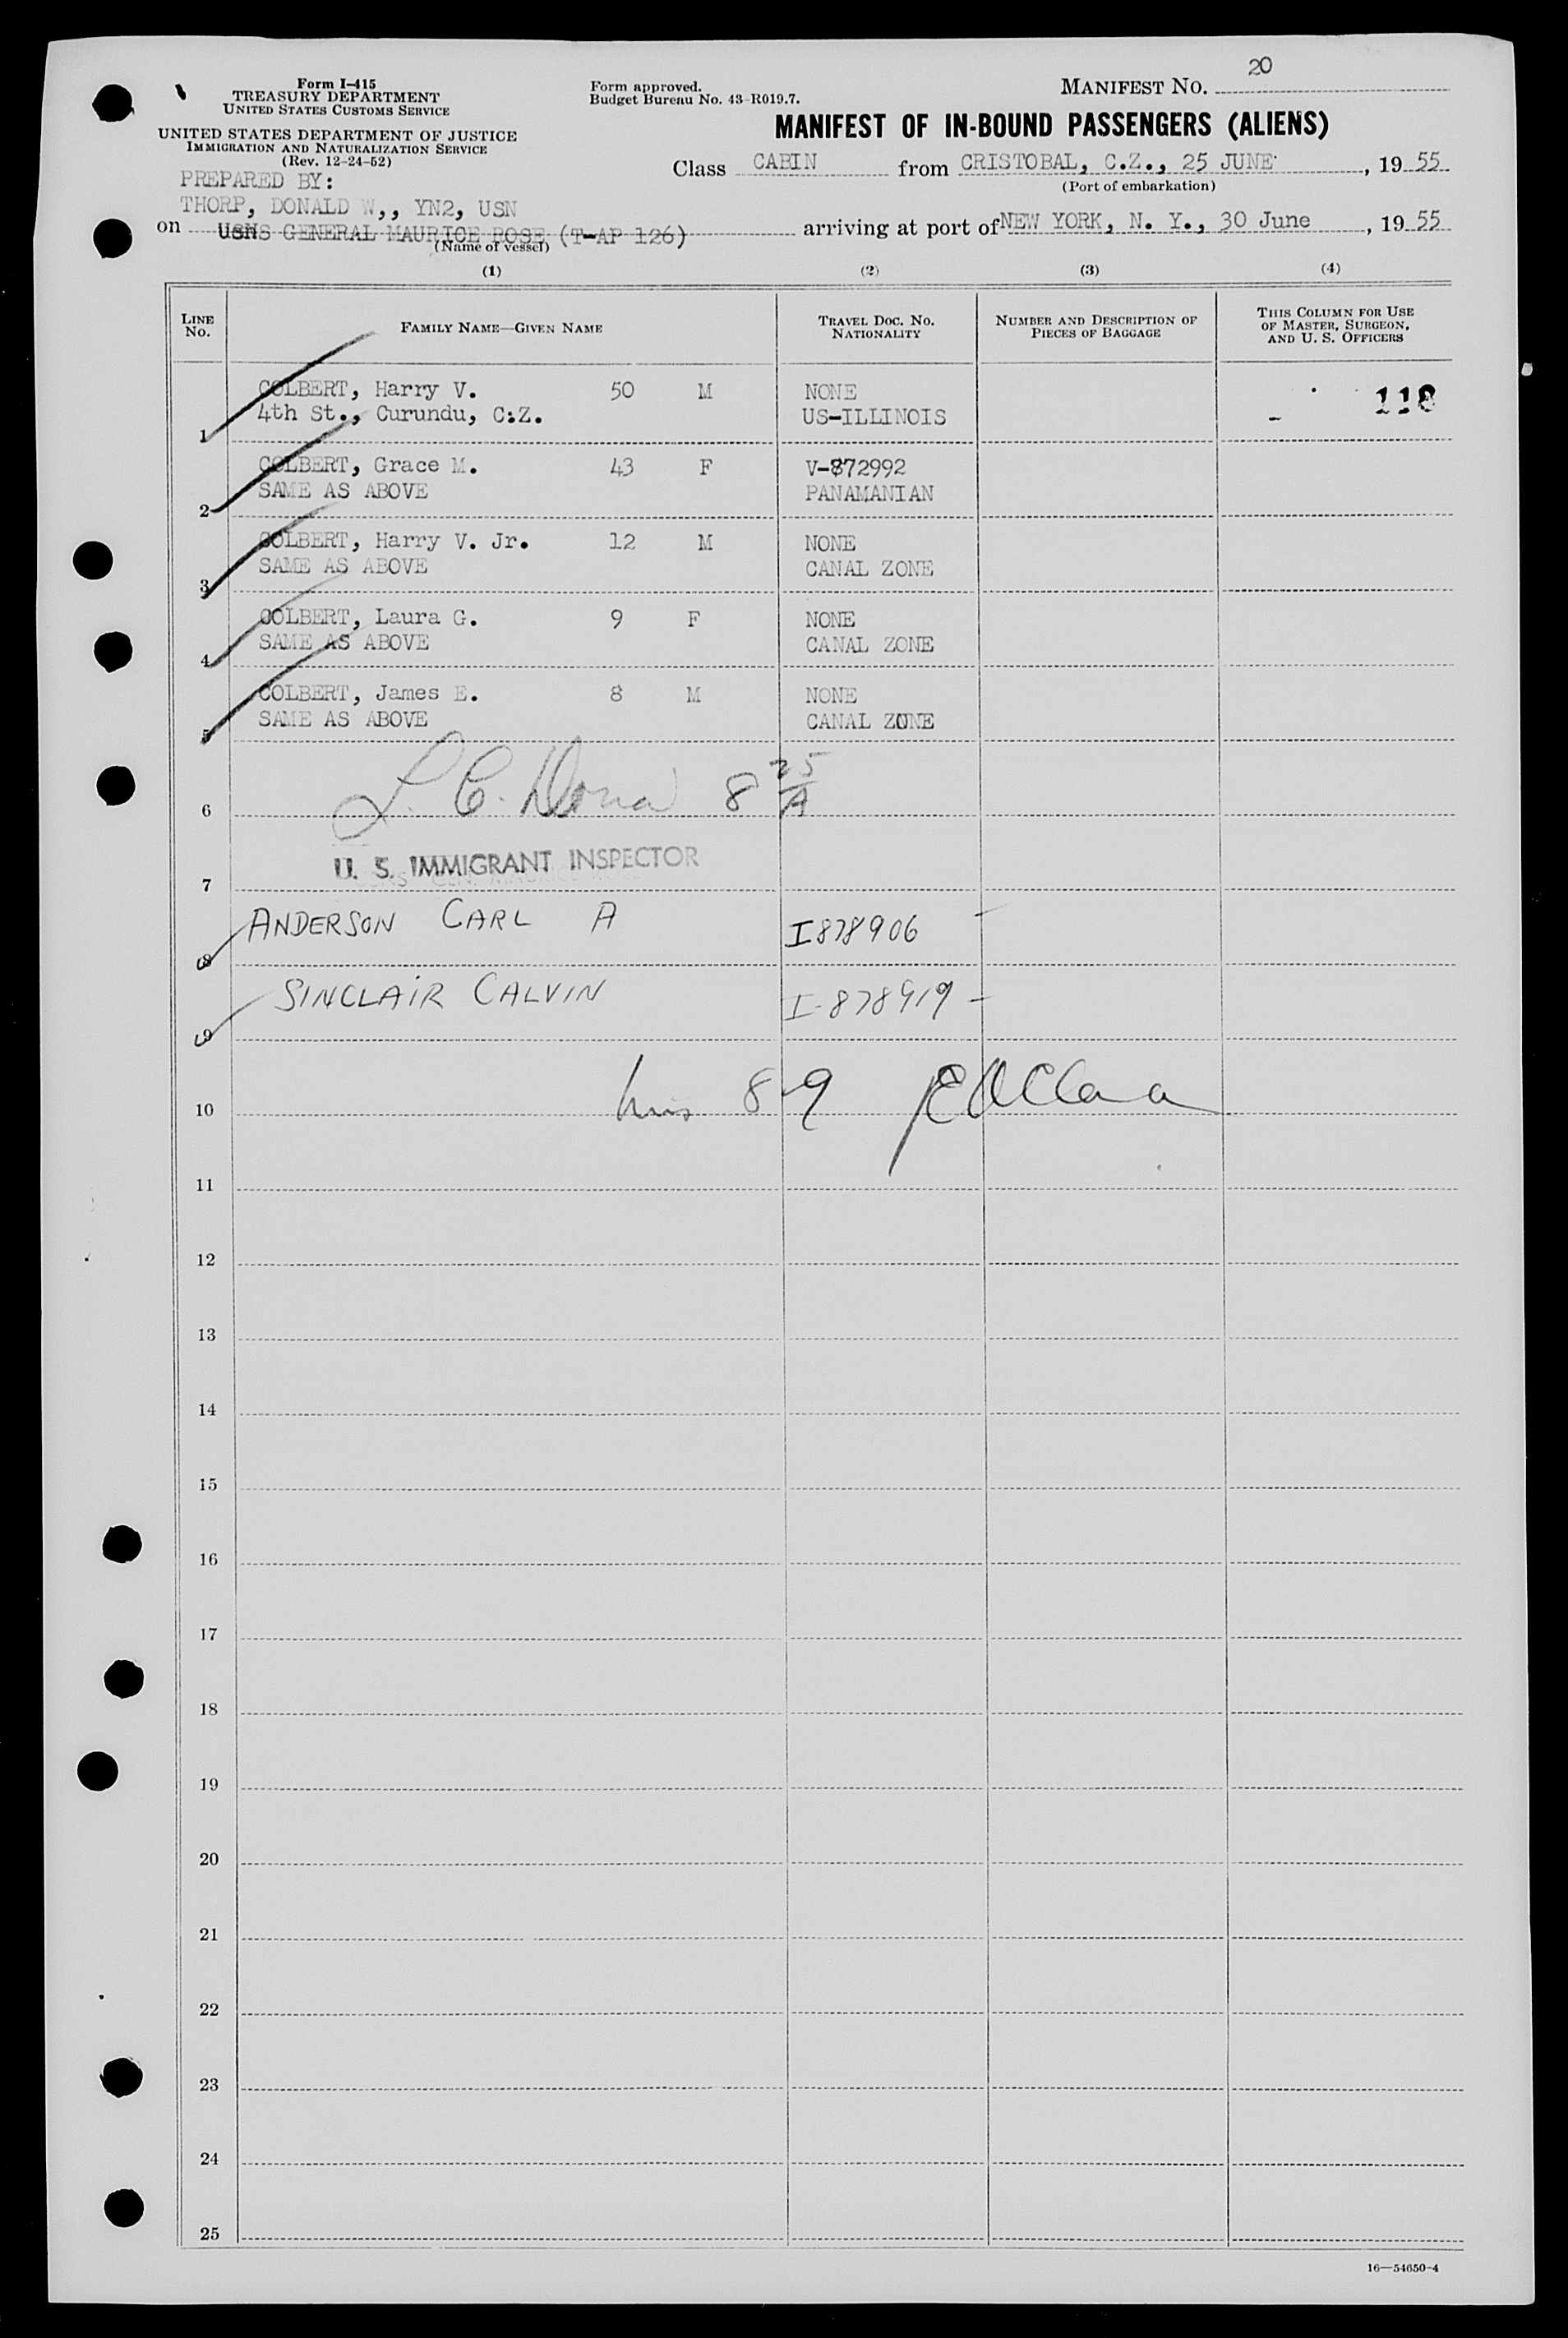 Form I-415
TREASURY DEPARTMENT
UNITED STATES CUSTOMS SERVICE
UNITED STATES DEPARTMENT OF JUSTICE
IMMIGRATION AND NATURALIZATION SERVICE
(Rev. 12-24-52)
Form approved.
Budget Bureau No. 43-R019.7.
MANIFEST NO. 20
MANIFEST OF IN-BOUND PASSENGERS (ALIENS)
Class CABIN from CRISTOBAL, C.Z., 25 JUNE, 19 55
(Port of embarkation)
PREPARED BY:
THORP, DONALD W,, YN2, USN
on USNS GENERAL MAURICE ROSE (T-AP 126) arriving at port of NEW YORK, N. Y., 30 June, 19 55
(Name of vessel)
(1) (2) (3) (4)
LINE NO. FAMILY NAME—GIVEN NAME TRAVEL DOC. NO. NATIONALITY NUMBER AND DESCRIPTION OF PIECES OF BAGGAGE THIS COLUMN FOR USE OF MASTER, SURGEON, AND U. S. OFFICERS
COLBERT, Harry V. 50 M NONE 118
1 4th St., Curundu, C.Z. US-ILLINOIS
COLBERT, Grace M. 43 F V-872992
2 SAME AS ABOVE PANAMANIAN
COLBERT, Harry V. Jr. 12 M NONE
3 SAME AS ABOVE CANAL ZONE
COLBERT, Laura G. 9 F NONE
4 SAME AS ABOVE CANAL ZONE
COLBERT, James E. 8 M NONE
5 SAME AS ABOVE CANAL ZONE
6 L. C. 8 25/A
7 U. S. IMMIGRANT INSPECTOR
8 ANDERSON CARL A I878906 –
9 SINCLAIR CALVIN I-878919 –
10 8-9
11
12
13
14
15
16
17
18
19
20
21
22
23
24
25
16—54650-4